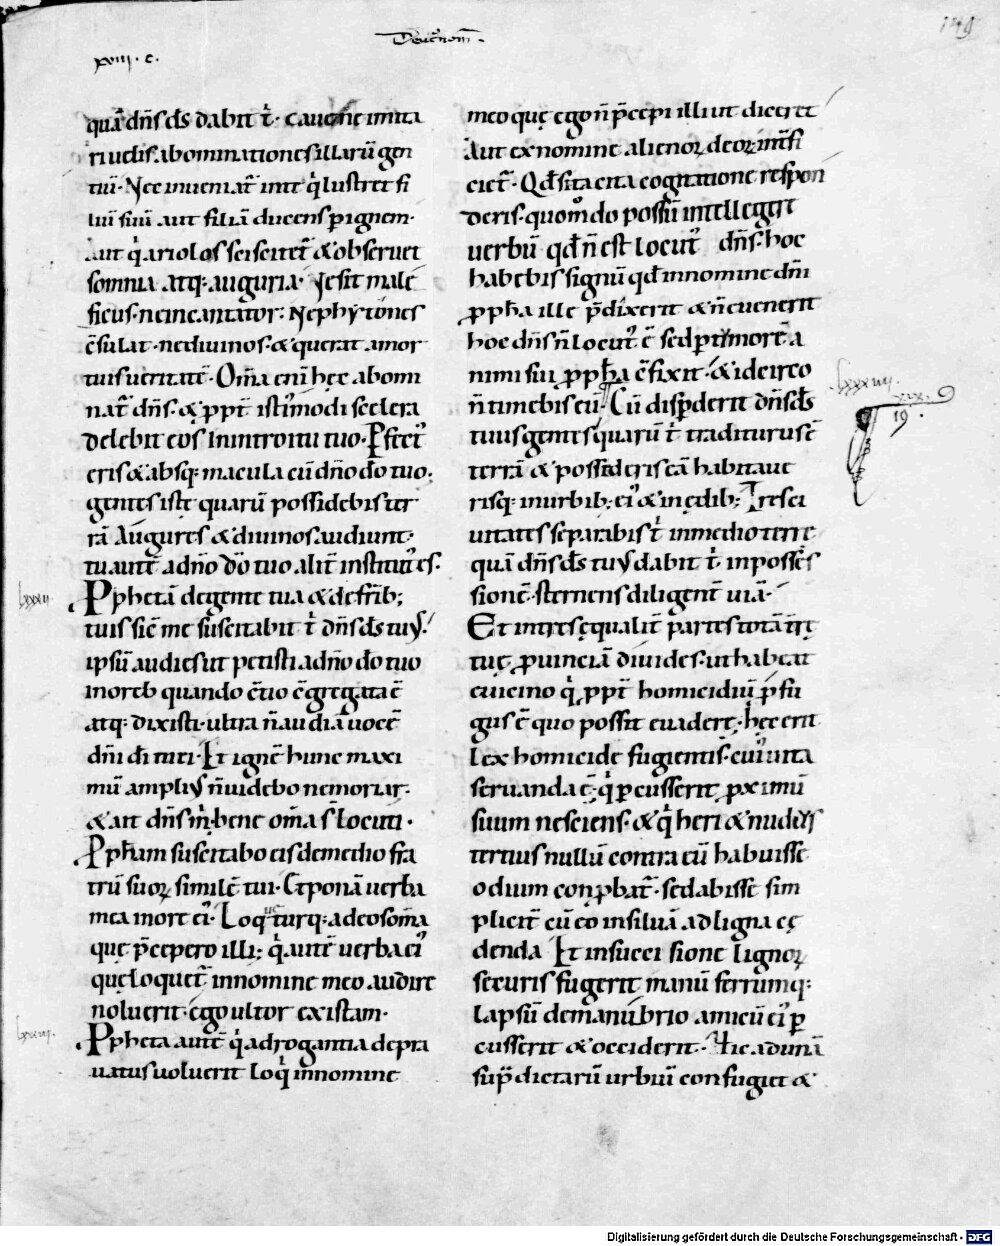 Deut̄nom̄.
149
xviii. c.
quā dn̄s ds̄ dabit t̄. caue ne imita
ri uelis abominationes illarū gen
tiū. Nec inueniat᷑ in te q̄ lustret fi
liū suū aut filiā ducens p̱ ignem.
aut q̄ ariolos sciscitet᷑ & obseruet
somnia atq; auguria. Ne sit male
ficus. ne incantator. Ne phytones
c̄sulat. ne diuinos. & querat a mor
tuis ueritatē. Om̄a eni hęc abomi
nat᷑ dn̄s. & ꝓpt̄ istīmodi scelera
delebit eos in introitu tuo. Pfect᷒
eris & absq; macula cū dn̄o dō tuo.
gentes istę quarū possidebis ter
rā. Augures & diuinos audiunt.
tu aut̄ a dn̄o dō tuo alit̄ institut᷒ es.
Ppħetā de gente tua & de frīb;
tuis sic̄ me suscitabit t̄ dn̄s ds̄ tuꝰ.
ipsū audies ut petisti a dn̄o dō tuo
in oreb quando c̄tio c̄gregata ē
atq; dixisti. ultra n̄ audiā uocē
dn̄i dī mei. Et ignē hunc maxi
mū ampliꝰ n̄ uidebo ne moriar.
& ait dn̄s m̄. bene om̄a s̄ locuti.
Ppħam suscitabo eis de medio fra
trū suoꝝ similē tui. Et ponā uerba
mea in ore ei᷒. Loq̄turq; ad eos om̄a
quę p̄cepero illi; q̄ aut̄ uerba ei᷒
quę loquet᷑ in nomine meo audire
noluerit. ego ultor existam.
Ppħeta aut̄ q̄ adrogantia depra
uatus uoluerit loq̄ in nomine
meo quę ego n̄ p̄cepi illi ut diceret
Aut ex nomine alienoꝝ deoꝝ int̄fi
ciet᷑. Qd̄ si tacita cogitatione respon
deris. quom̄do possū intellegere
uerbū qd̄ n̄ est locut᷒ dn̄s. hoc
habebis signū qd̄ in nomine dn̄i
ꝓpħa ille p̄dixerit & n̄ euenerit
hoc dn̄s n̄ locut᷒ ē sed p̱ timorē a
nimi sui ꝓpħa c̄fixit. & idcirco
n̄ timebis eū. Cū disp̱derit dn̄s ds̄
tuus gentes quarū t̄ traditurus ē
terrā & possederis eā habitaue
risq; in urbib; ei᷒ & in ędib; Tres ci
uitates separabis t̄ in medio terre
quā dn̄s ds̄ tuꝰ dabit t̄ in posses
sionē. sternens diligent̄ uiā.
Et in tres equalit̄ partes totā trę
tuę ꝓuinciā diuides. ut habeat
e uicino q̄ ꝓpt̄ homicidiū ꝓfu
gus ē quo possit euadere. hęc erit
lex homicide fugientis. cui᷒ uita
seruanda ē. q̄ p̱cusserit ꝓximū
suum nesciens. & q̄ heri & nudiꝰs
tertius nullū contra eū habuisse
odium conꝓbat᷑. sed abisse sim
plicit̄ cū eo in siluā ad ligna cę
denda. Et in succisione lignoꝝ
securis fugerit manū ferrumq;
lapsū de manubrio amicū ei᷒ p̱
cusserit & occiderit. Hic ad unā
sup̱dictarū urbiū confugiet &
lxxxii.
lxxxiii.
lxxxiiii.
xix.
19.
Digitalisierung gefördert durch die Deutsche Forschungsgemeinschaft - DFG